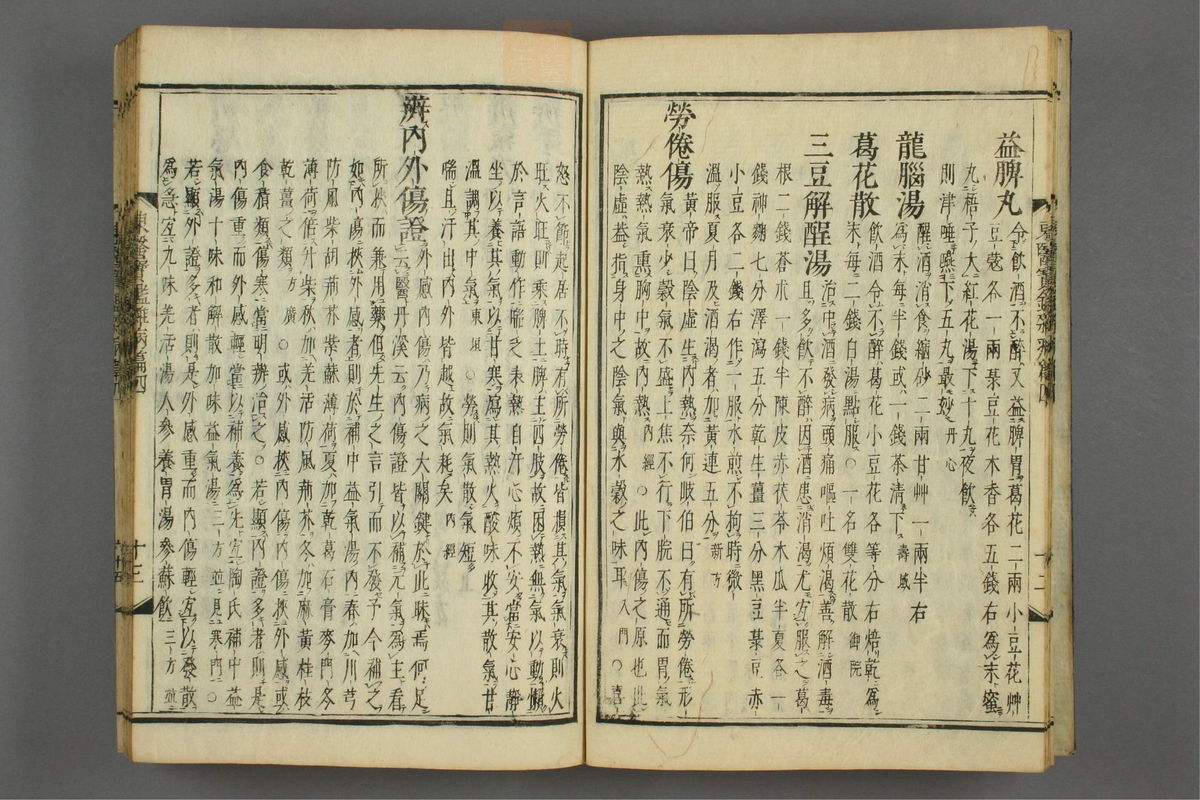 益脾丸 令飮酒不醉又益脾胃葛花二兩小豆花艸
豆蔲各一兩菉豆花木香各五錢右爲末蜜
丸梧子大紅花湯下十丸夜飮
則津唾嚥下五丸最妙 丹心
龍腦湯 醒酒消食縮砂二兩甘艸一兩半右
爲末每半錢或一錢茶清下 壽域
葛花散 飮酒令不醉葛花小豆花各等分右焙乾爲
末每二錢白湯點服○一名雙花散 御院
三豆解酲湯 治中酒發病頭痛嘔吐煩渴善解酒毒
且多飮不醉因酒患消渴尤宜服之葛
根二錢蒼朮一錢半陳皮赤茯苓木瓜半夏各一
錢神麴七分澤瀉五分乾生薑三分黑豆菉豆赤
小豆各二錢右作一服水煎不拘時微
溫服夏月及酒渴者加黃連五分 新方
勞倦傷 黃帝曰陰虛生內熱奈何岐伯曰有所勞倦形
氣衰少穀氣不盛上焦不行下脘不通而胃氣
熱熱氣熏胸中故內熱 內經○此內傷之原也此
陰虛盖指身中之陰氣與水穀之味耳 入門○喜
怒不節起居不時有所勞倦皆損其氣氣衰則火
旺火旺則乘脾土脾主四肢故困熱無氣以動懶
於言語動作喘乏表熱自汗心煩不安當安心靜
坐以養其氣以甘寒瀉其熱火酸味收其散氣甘
溫調其中氣 東垣○勞則散氣短
喘且汗出內外皆越故氣耗矣 內經
辨內外傷證 外感內傷乃病之大關鍵於此昧焉何足
云醫丹溪云內傷證皆以補元氣爲主看
所挾而兼用藥但先生之言引而不發予今補之
如內傷挾外感者則於補中益氣湯內春加川芎
防風柴胡荊芥紫蘇薄荷夏加乾葛石膏麥門冬
薄荷倍升柴秋加羌活防風荊芥冬加麻黃桂枝
乾薑之類 方廣○或外感挾內傷內傷挾外感或
食積類傷寒當明辨治之○若顯內證多者則是
內傷重而外感輕當以補養爲先宜陶氏補中益
氣湯十味和解散加味益氣湯三方 並見寒門○
若顯外證多者則是外感重而內傷輕宜以發散
爲急宜九味羌活湯人參養胃湯參蘇飮 三方並
東醫寶鑑雜病篇四